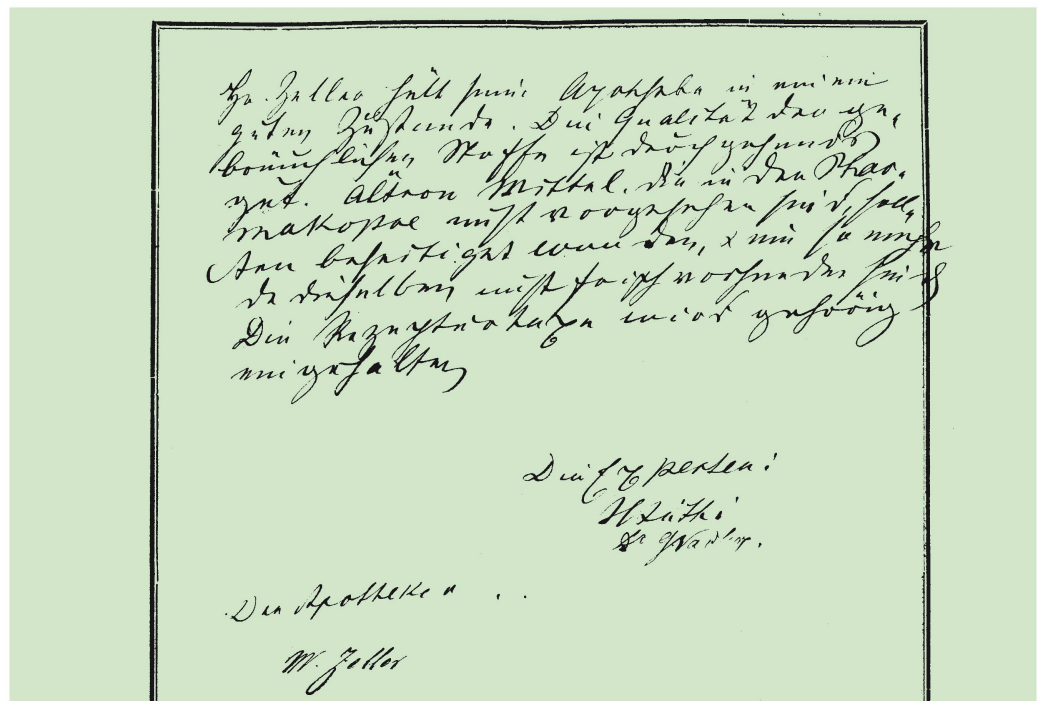 Hr. Zeller hält seine Apotheke in einem
guten Zustande. Die Qualität der ge-
bräuchlichen Stoffe ist durchgehends
gut. Ältere Mittel, die in der Phar-
makopoe nicht vorgesehen sind, soll-
ten beseitiget werden, um so mehr
da dieselben nicht frisch vorhanden sind
Die Rezepturtaxe wird gehörig
eingehalten
Die Experten:
Dr
Der Apotheker
M. Zeller